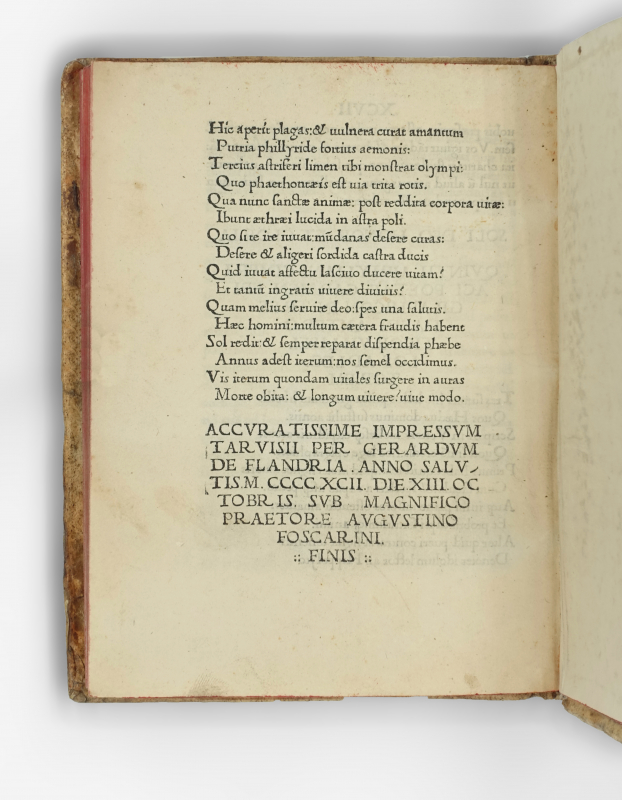 Hic aperit plagas:& uulnera curat amantum
Putria phillyride fortius aemonis:
Tercius astriferi limen tibi monstrat olympi:
Quo phaethontæis est uia trita rotis.
Qua nunc sanctæ animæ: post reddita corpora uitæ:
Ibunt æthræi lucida in astra poli.
Quo si te ire iuuat: mūdanas desere curas:
Desere & aligeri sordida castra ducis
Quid iuuat affectu lasciuo ducere uitam?
Et tantū ingratis uiuere diuitiis?
Quam melius seruire deo: spes una salutis.
Hæc homini: multum cætera fraudis habent
Sol redit:& semper reparat dispendia phæbe
Annus adest iterum: nos semel occidimus.
Vis iterum quondam uitales surgere in auras
Morte obita: & longum uiuere? uiue modo.
ACCVRATISSIME IMPRESSVM
TARVISII PER GERARDVM
DE FLANDRIA . ANNO SALV-
TIS.M. CCCC XCII. DIE XIII. OC
TOBRIS. SVB MAGNIFICO
PRAETORE AVGVSTINO
FOSCARINI.
:: FINIS ::